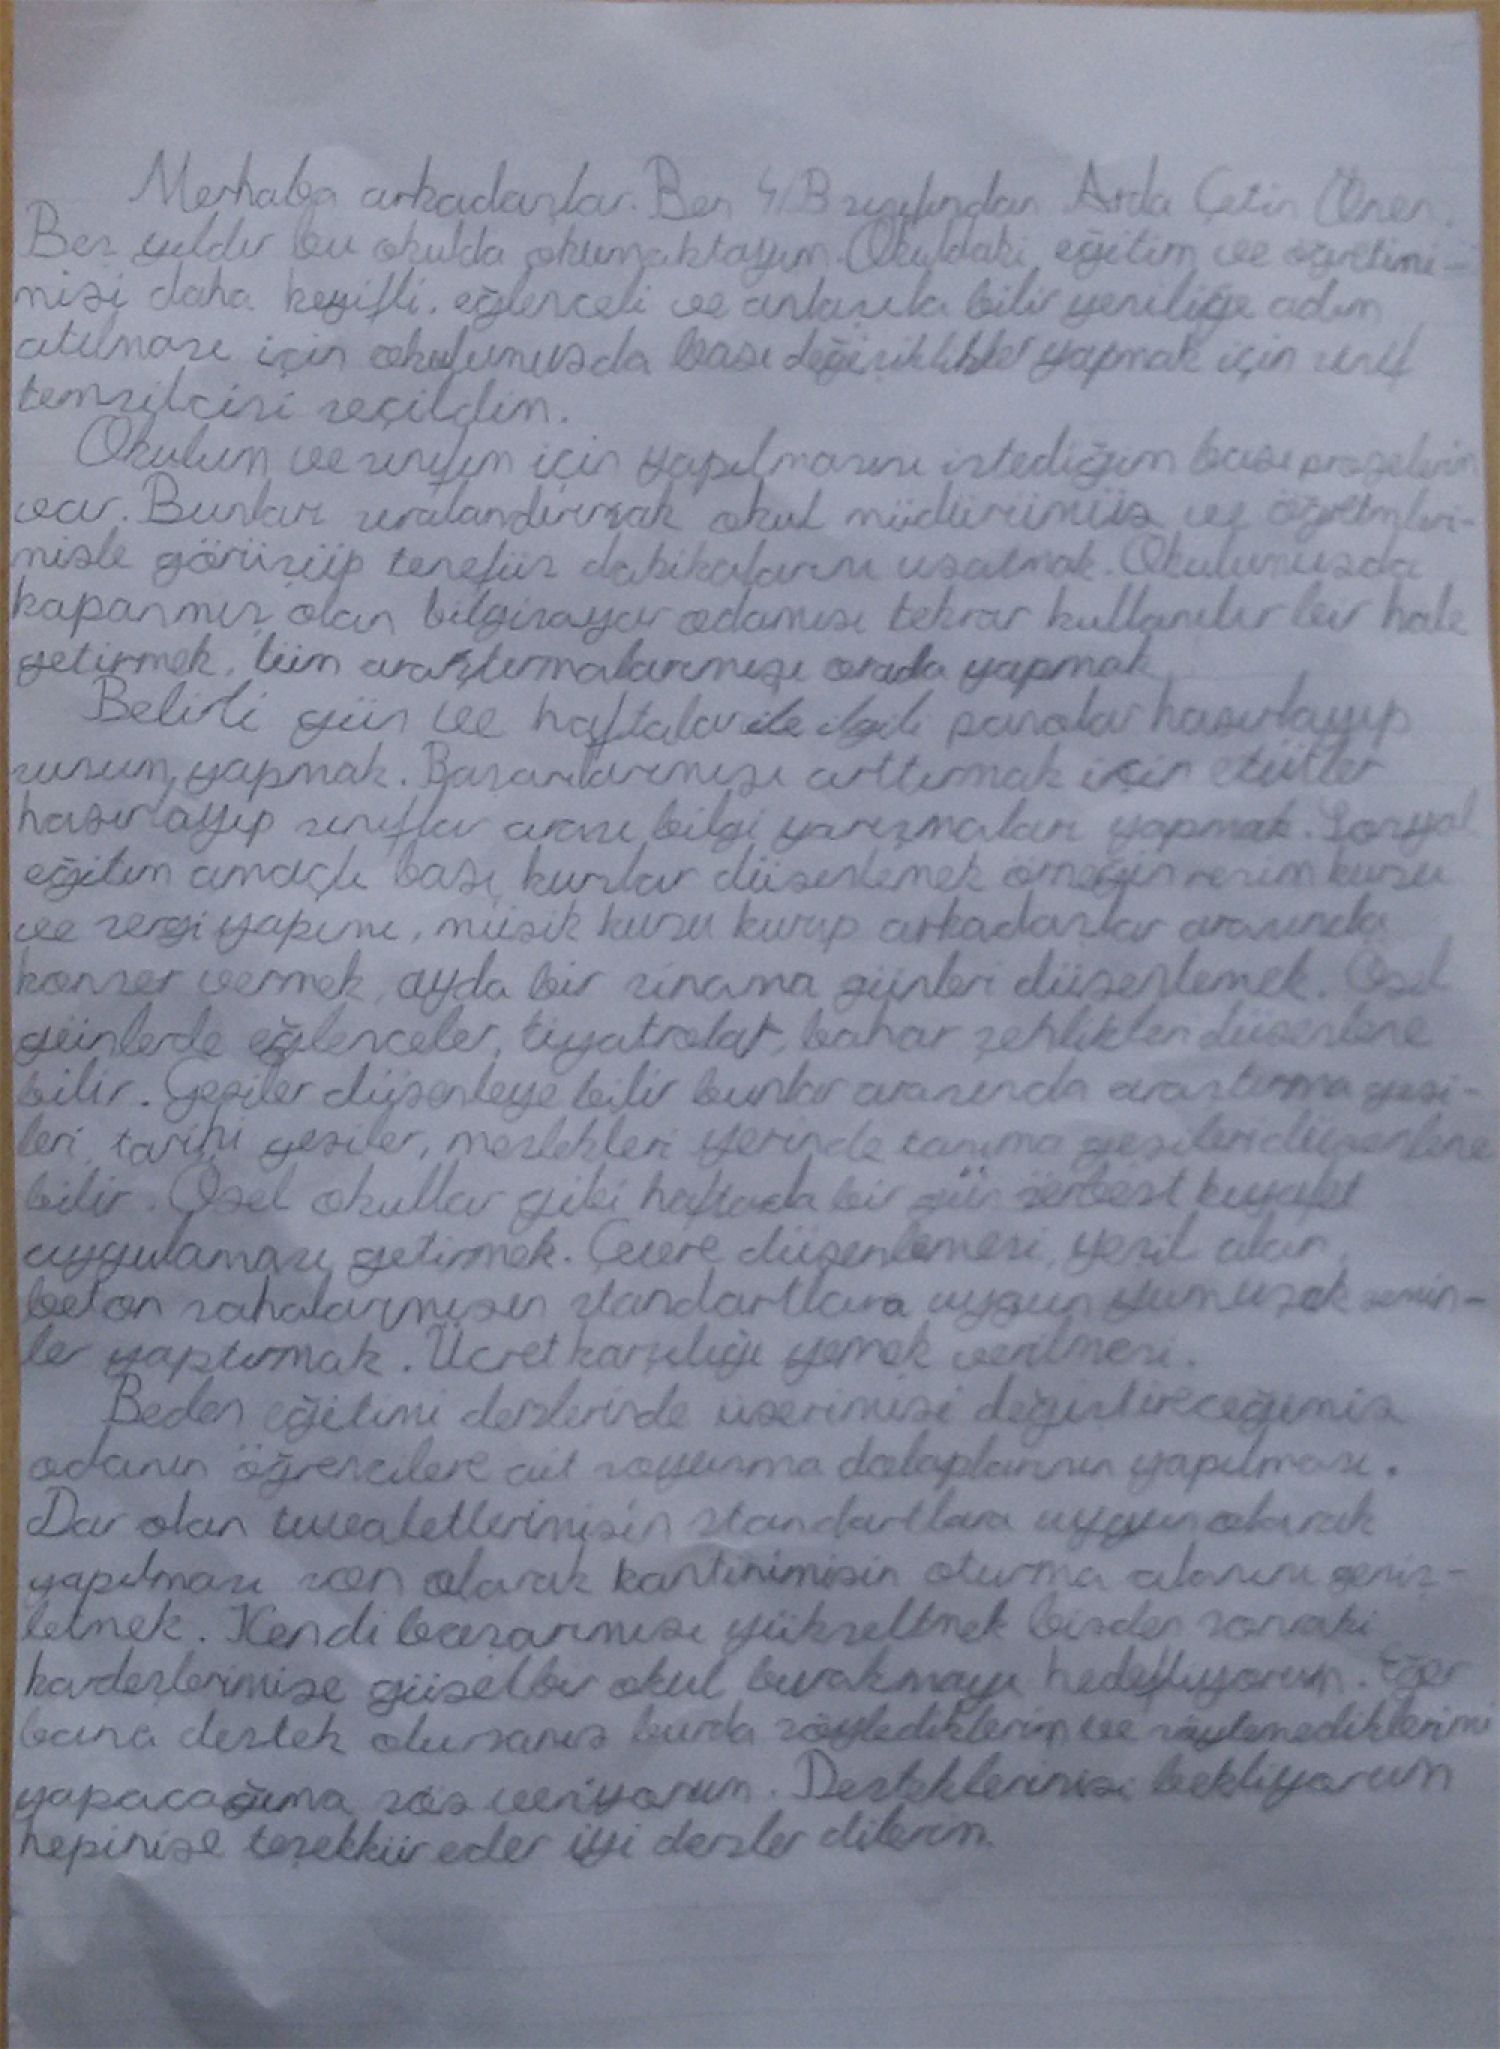 Merhaba arkadaşlar. Ben 4/B sınıfından Arda Çetin Öner.
Beş yıldır bu okulda okumaktayım. Okuldaki eğitim ve öğretimi-
mizi daha keyifli, eğlenceli ve anlaşıla bilir yeniliğe adım
atılması için okulumuzda bazı değişiklikler yapmak için sınıf
temsilcisi seçildim.
Okulum ve sınıfım için yapılmasını istediğim bazı projelerim
var. Bunları sıralandırırsak okul müdürümüz ve öğretmleri-
mizle görüşüp tenefüs dakikalarını uzatmak. Okulumuzda
kapanmış olan bilgisayar odamızı tekrar kullanılır bir hale
getirmek, tüm araştırmalarımızı orada yapmak
Belirli gün ve haftalar ile ilgili panolar hazırlayıp
sunum yapmak. Başarılarımızı arttırmak için etütler
hazırlayıp sınıflar arası bilgi yarışmaları yapmak. Sosyal
eğitim amaçlı bazı kurslar düzenlemek örneğin resim kursu
ve sergi yapımı, müzik kursu kurup arkadaşlar arasında
konser vermek, ayda bir sinama günleri düzenlemek. Özel
günlerde eğlenceler, tiyatrolar, bahar şenlikleri düzenlene
bilir. Geziler düzenleye bilir bunlar arasında araştırma gezi-
leri, tarihi geziler, meslekleri yerinde tanıma gezileri düzenlene
bilir. Özel okullar gibi haftada bir gün serbest kıyafet
uygulaması getirmek. Çevre düzenlemesi, yeşil alan,
beton sahalarımızın standartlara uygun yumuşak zemin-
ler yaptırmak. Ücret karşılığı yemek verilmesi.
Beden eğitimi derslerinde üzerimizi değiştireceğimiz
odanın öğrencilere ait soyunma dolaplarının yapılması.
Dar olan tuvaletlerimizin standartlara uygun olarak
yapılması son olarak kantinimizin oturma alanını geniş-
letmek. Kendi başarımızı yükseltmek bizden sonraki
kardeşlerimize güzel bir okul bırakmayı hedefliyorum. Eğer
bana destek olursanız burda söylediklerim ve söylemediklerimi
yapacağıma söz veriyorum. Desteklerinizi bekliyorum
hepinize teşekkür eder iyi dersler dilerim.